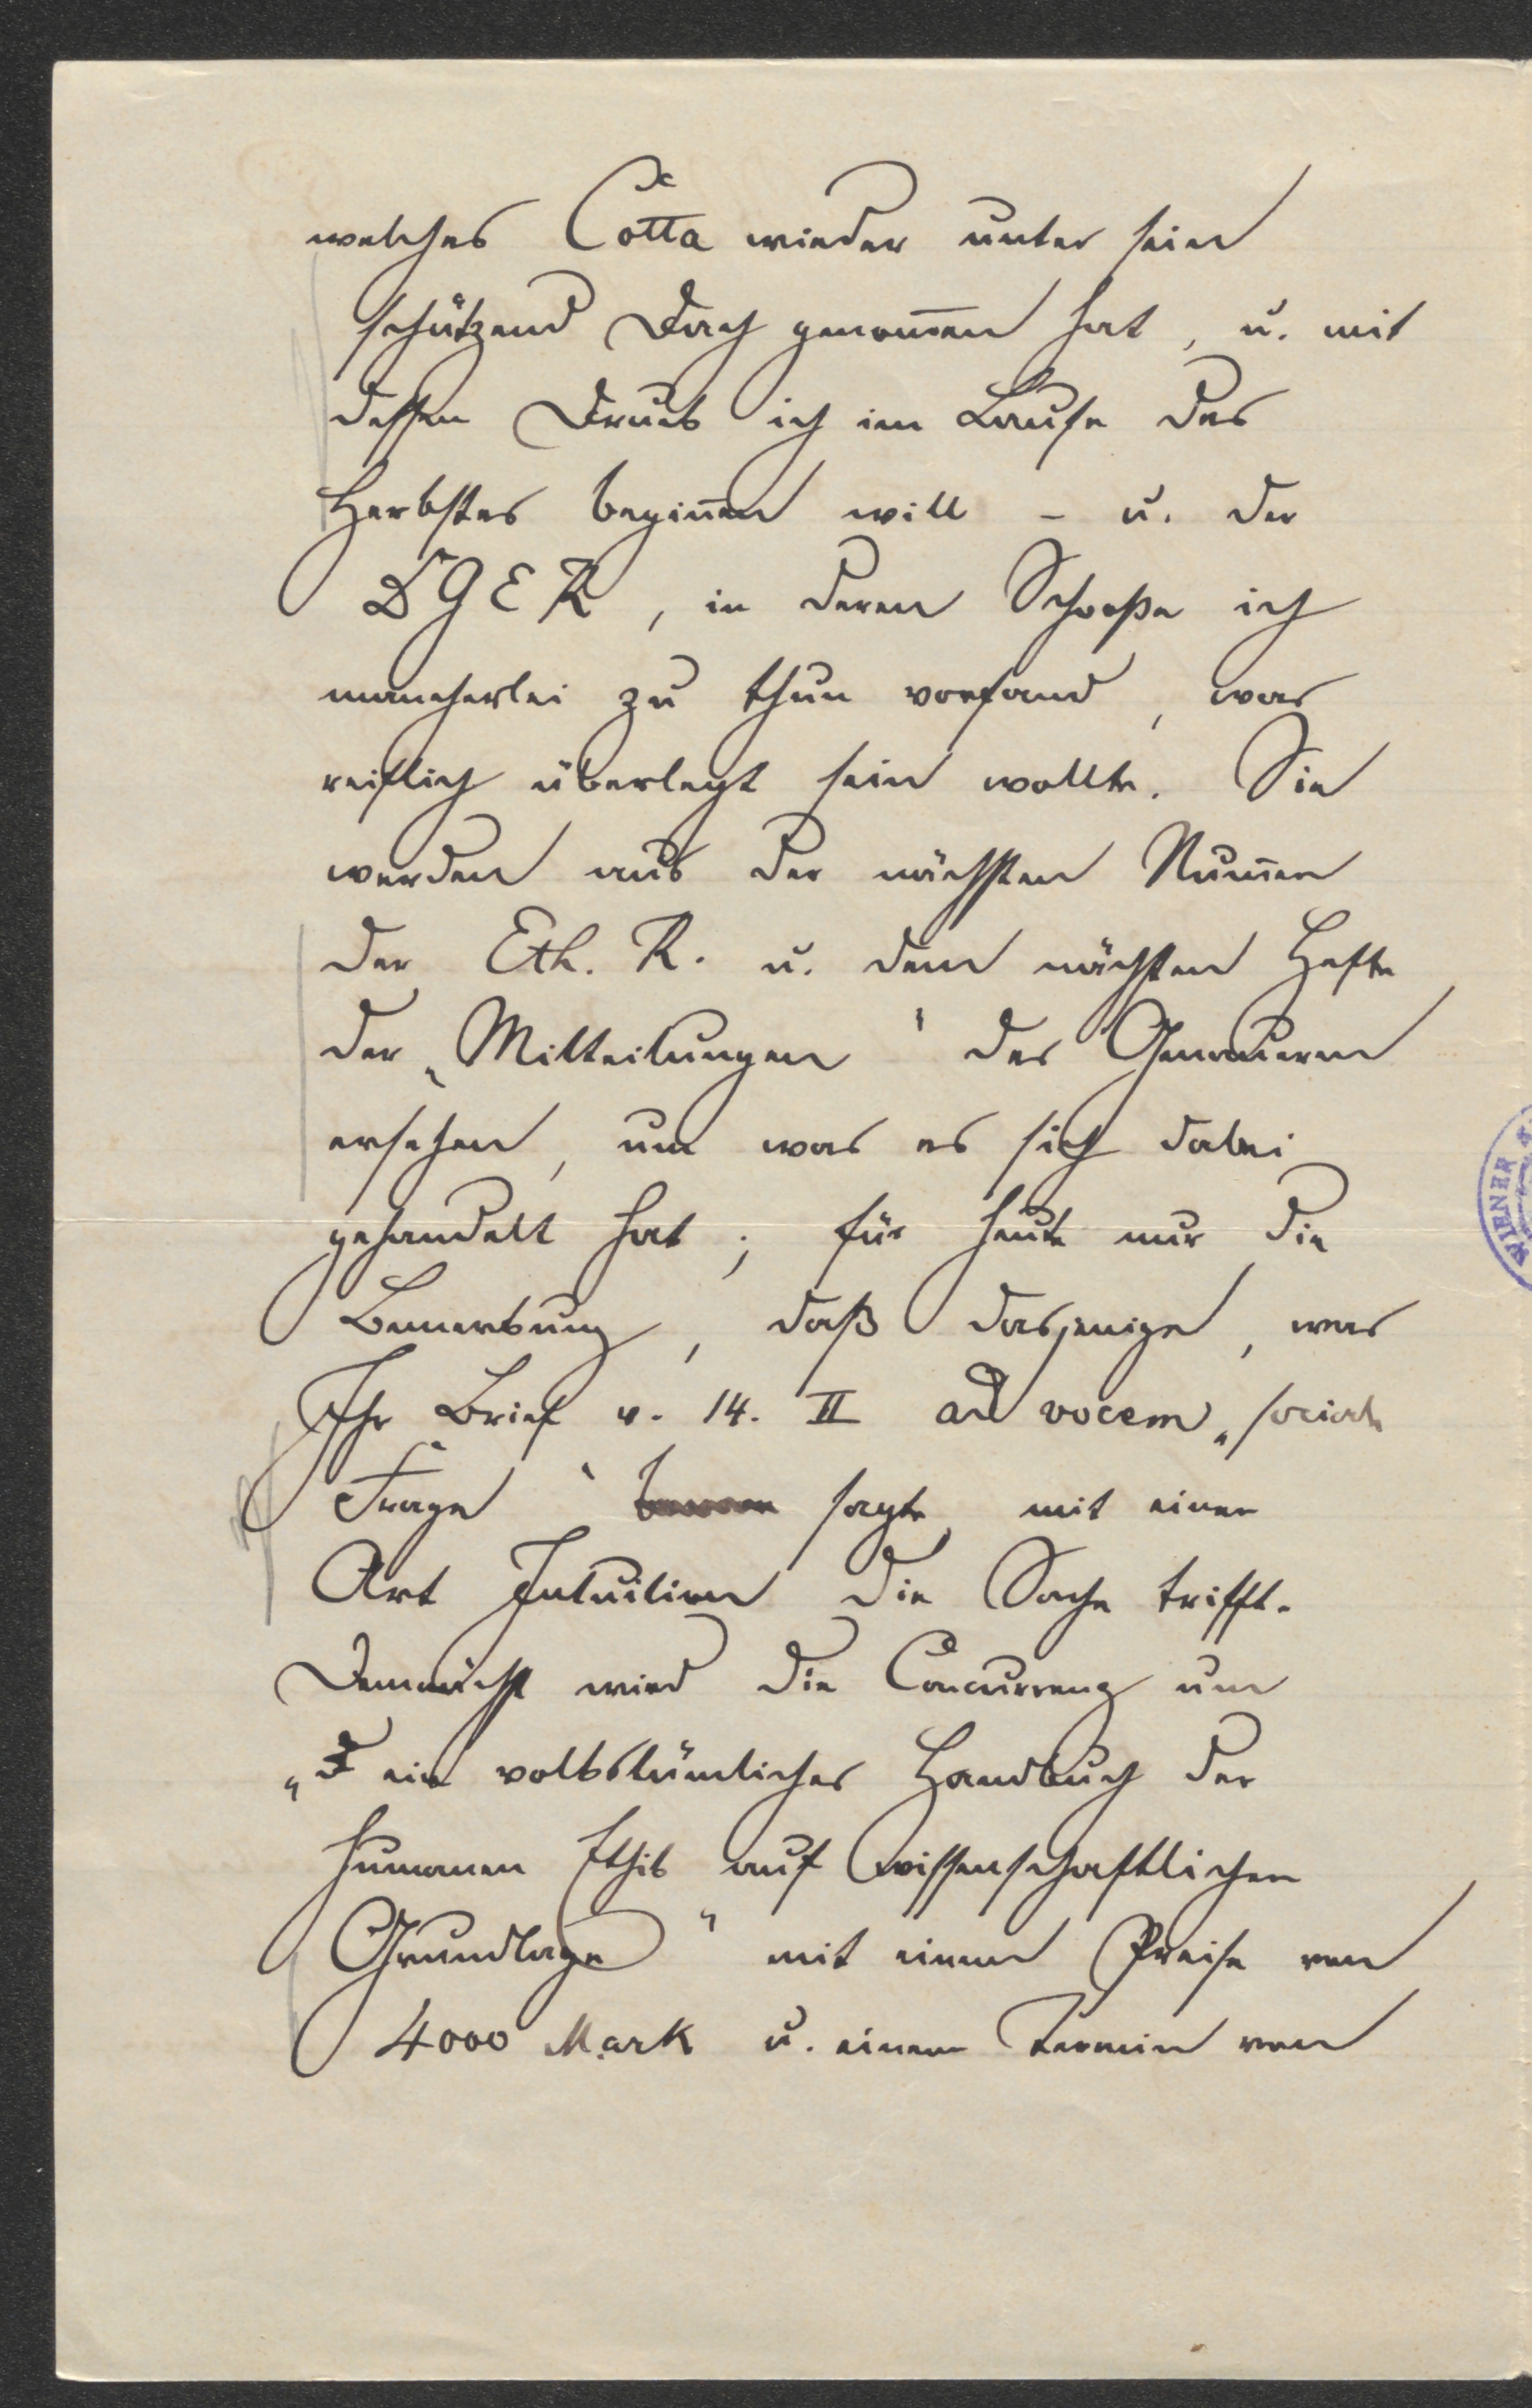 welches Cotta wieder unter sein
schützend Dach genom̄en hat, u. mit
dessen Druck ich im Laufe des
Herbstes begin̄en will – u. der
DGEK, in deren Schoße ich
mancherlei zu thun vorfand, was
reiflich überlegt sein wollte. Sie
werden aus der nächsten Num̄er
der Eth. K. u. dem nächsten Hefte
der „Mitteilungen“ des Genaueren
ersehen, um was es sich dabei
gehandelt hat; für heute nur die
Bemerkung, daß dasjenige, was
Ihr Brief v. 14. II ad vocem „sociale
Frage“ sagte, mit einer
Art Intuition die Sache trifft.
Demnächst wird die Concurrenz um
„ein volkstümliches Handbuch der
humanen Ethik auf wissenschaftlicher
Grundlage“ mit einem Preise von
4000 Mark u. einem Termin von
WIENER